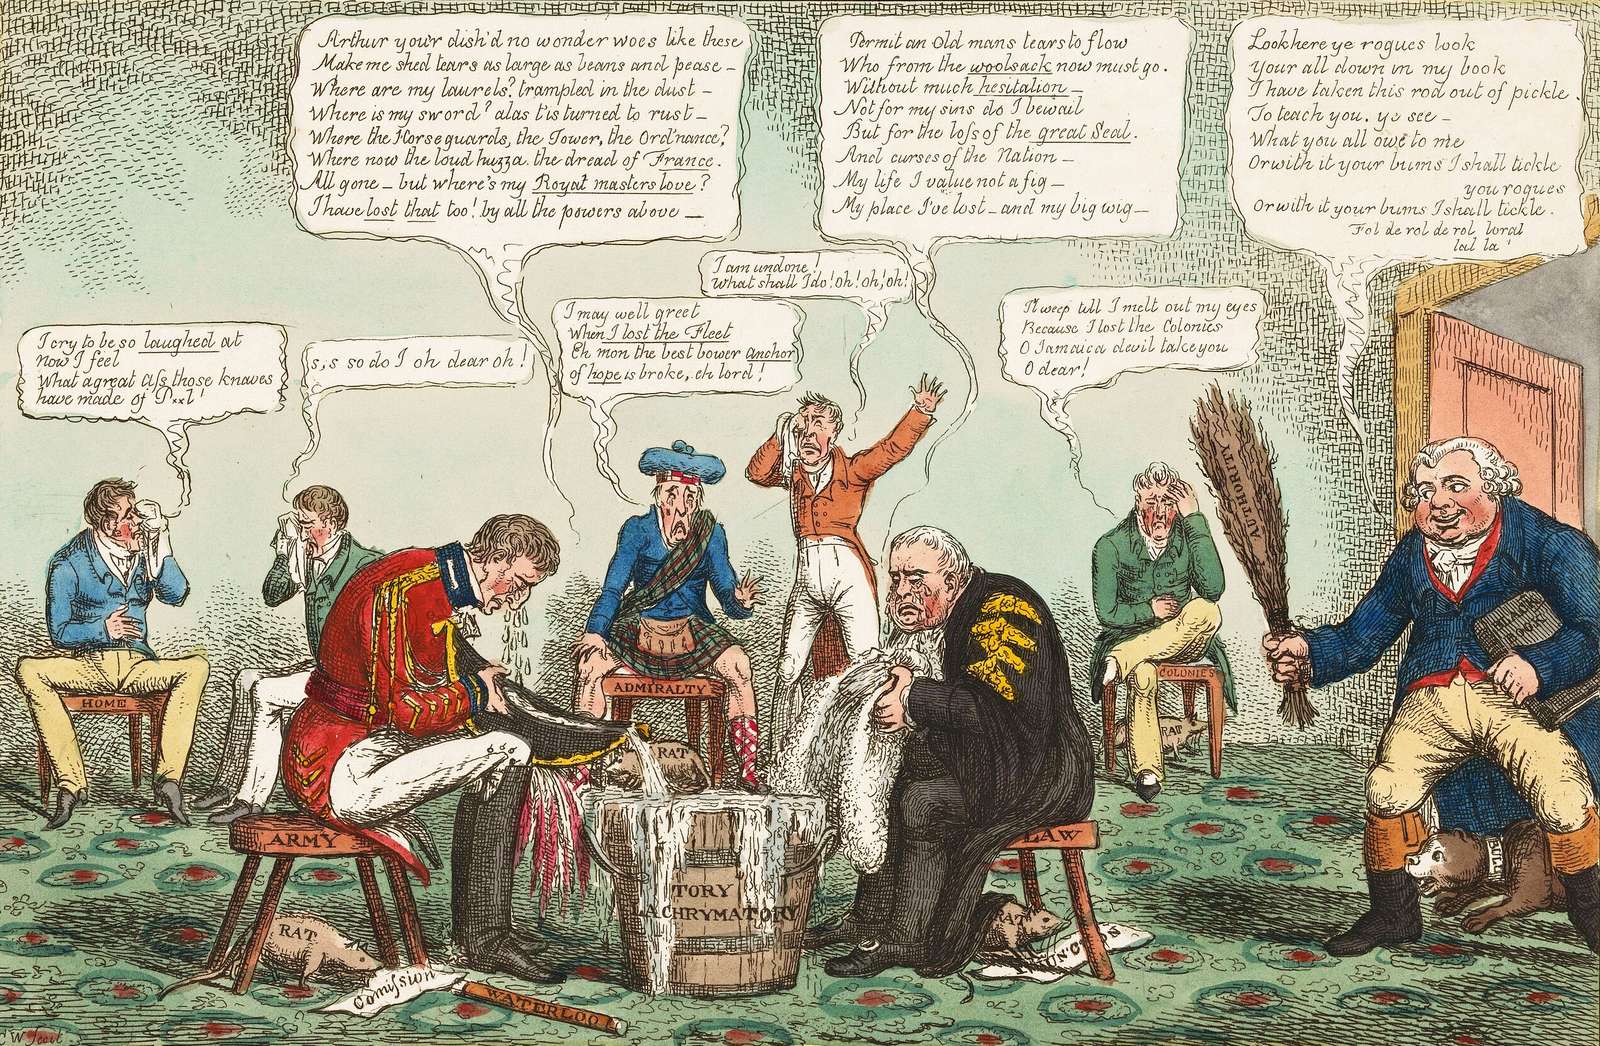 Arthur you'r dish'd no wonder woes like these
Make me shed tears as large as beans and pease –
Where are my laurels? trampled in the dust –
Where is my sword? alas t'is turned to rust –
Where the Horse guards, the Tower, the Ord'nance,
Where now the loud huzza. the dread of France.
All gone – but where's my Royal masters love?
I have lost that too! by all the powers above –
Permit an Old mans tears to flow
Who from the woolsack now must go.
Without much hesitation –
Not for my sins do I bewail
But for the loss of the great Seal.
And curses of the Nation –
My life I value not a fig –
My place I've lost – and my big wig –
Look here ye rogues look
Your all down in my book
I have taken this rod out of pickle.
To teach you. ye see –
What you all owe to me
Or with it your bums I shall tickle
you rogues
Or with it your bums I shall tickle.
Fol de rol de rol loral
lal la'
I am undone!
What shall I do! oh! oh, oh!
I may well greet
When I lost the Fleet
Eh mon the best bower anchor
of hope is broke, eh lord!
I'l weep till I melt out my eyes
Because I lost the Colonies
O Jamaica devil take you
O dear!
I cry to be so laughed at
Now I feel
What a great Ass those knaves
have made of P**l!
s,s so do I oh dear oh!
AUTHORITY
HOME
ADMIRALTY
COLONIES
RAT
RAT
ARMY
LAW
TORY
LACHRYMATORY
RAT
RAT
Comission
WATERLOO
C W fecit